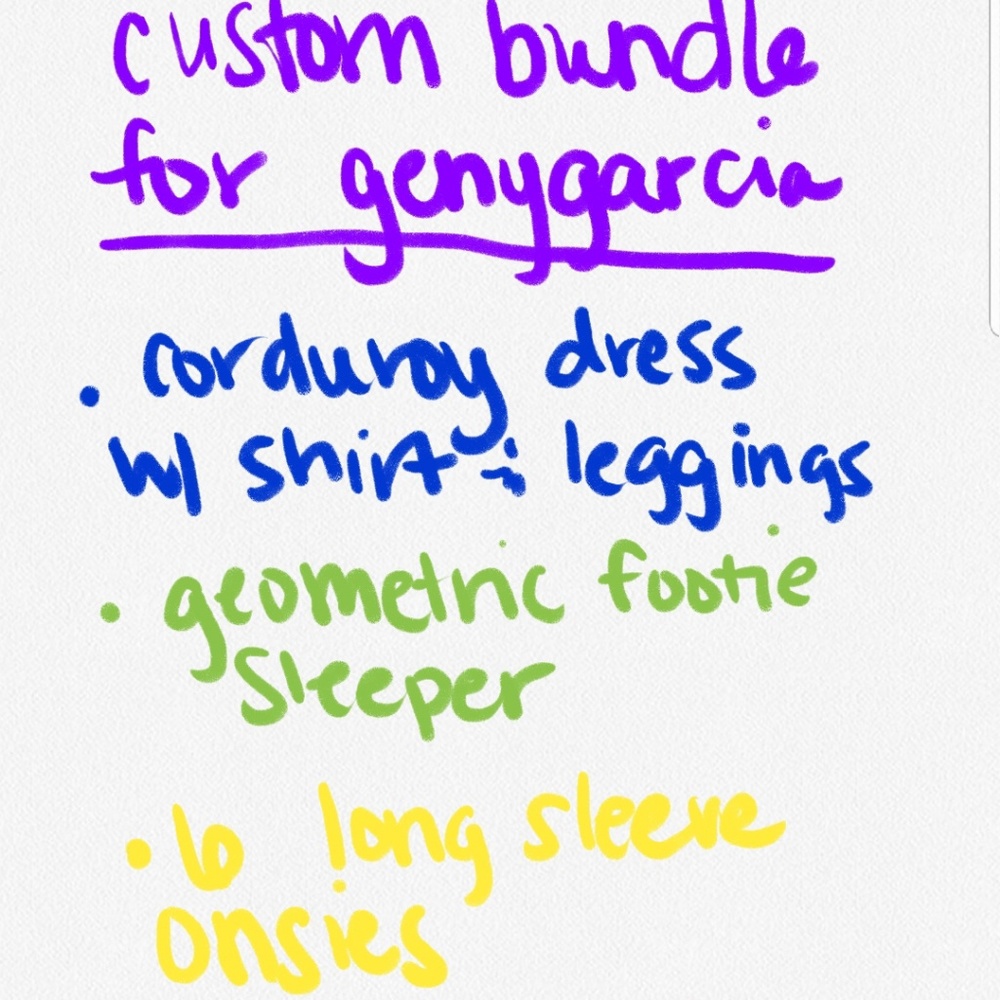 custom bundle
for genygarcia
• corduroy dress
w/ shirt & leggings
• geometric footie
sleeper
• 6 long sleeve
onsies